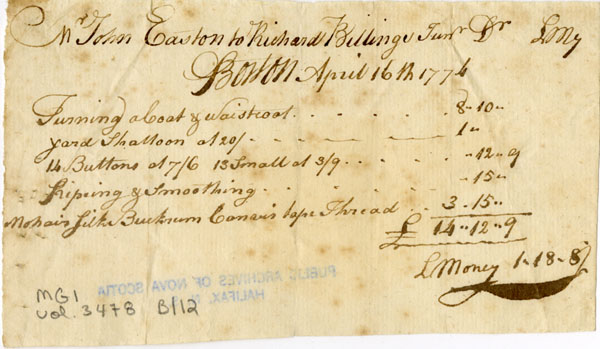 Mr John Easton to Richard Billings Junr Dr LMy
Boston April 16th 1774
Turning a Coat & Waistcoat . . . . . 8 - 10 ..
yard Shalloon at 20/ . . . 1 "
14 Buttons at 7/6 13 Small at 3/9 . . . . " 12 " 9
Riping & Smoothing . . . . . " 15 "
Mohair Silk Buckrum Canvis tape Thread . . 3 - 15 ..
£ 14 " 12 " 9
L Money 1 - 18 - 8
PUBLIC ARCHIVES OF NOVA SCOTIA
HALIFAX, N. S.
MG1
Vol. 3478 B/12